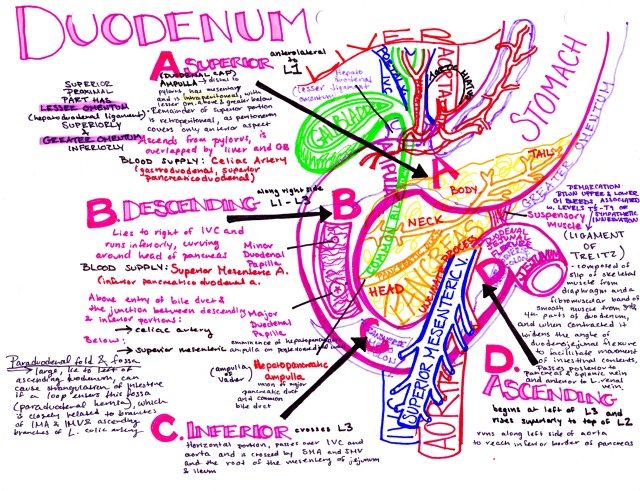 DUODENUM
A SUPERIOR
anterolateral
to
L1
(DUODENAL CAP)
AMPULLA → distal to
pylorus, has mesentery
and is intraperitoneal, with
lesser om. above & greater below
• Remainder of superior portion
is retroperitoneal, as peritoneum
covers only anterior aspect
Ascends from pylorus, is
overlapped by liver and GB
BLOOD SUPPLY: Celiac Artery
(gastroduodenal, superior
pancreaticoduodenal)
SUPERIOR
PROXIMAL
PART HAS
LESSER OMENTUM
(hepatoduodenal ligament)
SUPERIORLY
&
GREATER OMENTUM
INFERIORLY
B. DESCENDING
along right side
L1 - L3
Lies to right of IVC and
runs inferiorly, curving
around head of pancreas
BLOOD SUPPLY: Superior Mesenteric A.
(inferior pancreatico duodenal a.)
Minor
Duodenal
Papilla
Above entry of bile duct &
the junction between descending
& inferior portions:
→ celiac artery
Below:
→ superior mesenteric
Major
Duodenal
Papilla
eminance of hepatopancreatic
ampulla on posteromedial wall
(ampulla
of
Vader)
Hepatopancreatic
ampulla
union of major
pancreatic duct
and common
bile duct
Paraduodenal fold & fossa
→ large, lie to left of
ascending duodenum, can
cause strangulation of intestine
if a loop enters this fossa
(paraduodenal hernia), which
is closely related to branches
of IMA & IMV & ascending
branches of L. colic artery
C. INFERIOR
crosses L3
Horizontal portion, passes over IVC and
aorta and is crossed by SMA and SMV
and the root of the mesentery of jejunum
& ileum
D. ASCENDING
begins at left of L3 and
rises superiorly to top of L2
runs along left side of aorta
to reach inferior border of pancreas
LIVER
PORTAL V.
IVC
AORTIC HIATUS
Hepato
duodenal
(lesser ligament
omentum)
GALLBLADDER
STOMACH
GREATER OMENTUM
A
TAIL
BODY
NECK
HEAD
PANCREAS
UNCINATE PROCESS
COMMON BILE
B
C
D
SUPERIOR MESENTERIC V.
IVC
AORTA
DUODENAL
JEJUNAL
FLEXURE
JEJUNUM
Suspensory
Muscle
DEMARCATION
BTWN UPPER & LOWER
GI BLEEDS, ASSOCIATED
W. LEVELS T8-T9 OF
SYMPATHETIC
INNERVATION
(LIGAMENT
OF
TREITZ)
- composed of
slip of skeletal
muscle from
diaphragm and a
fibromuscular band of
smooth muscle from 3rd &
4th parts of duodenum,
and when contracted it
widens the angle of
duodenojejunal flexure
to facilitate movement
of intestinal contents.
Passes posterior to
pancreas & splenic vein
and anterior to L. renal
vein.